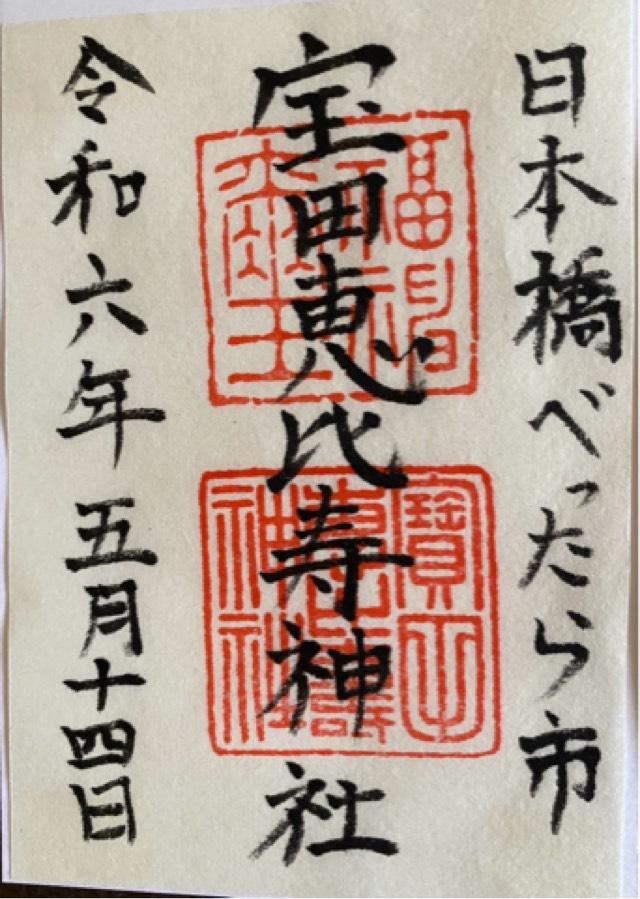 日本橋べったら市
宝田恵比寿神社
令和六年五月十四日